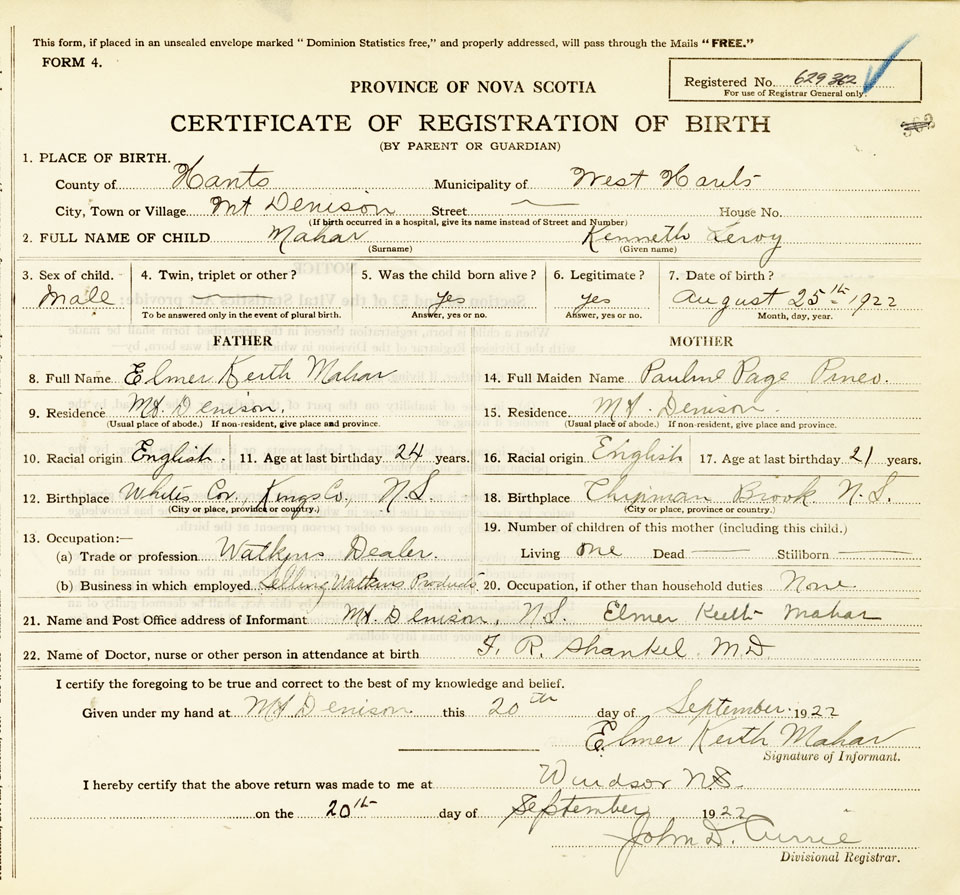 This form, if placed in an unsealed envelope marked “ Dominion Statistics free,” and properly addressed, will pass through the Mails “ FREE.”
FORM 4.
Registered No. 629362
For use of Registrar General only.
PROVINCE OF NOVA SCOTIA
CERTIFICATE OF REGISTRATION OF BIRTH
(BY PARENT OR GUARDIAN)
1. PLACE OF BIRTH.
County of Hants Municipality of West Hants
City, Town or Village Mt Denison Street — House No.
(If birth occurred in a hospital, give its name instead of Street and Number)
2. FULL NAME OF CHILD Mahar Kenneth Leroy
(Surname) (Given name)
3. Sex of child. 4. Twin, triplet or other ? 5. Was the child born alive ? 6. Legitimate ? 7. Date of birth ?
Male — yes yes August 25th 1922
To be answered only in the event of plural birth. Answer, yes or no. Answer, yes or no. Month, day, year.
FATHER MOTHER
8. Full Name Elmer Keith Mahar 14. Full Maiden Name Pauline Page Pineo.
9. Residence Mt. Denison. 15. Residence. Mt. Denison.
(Usual place of abode.) If non-resident, give place and province. (Usual place of abode.) If non-resident, give place and province.
10. Racial origin English. 11. Age at last birthday 24 years. 16. Racial origin English 17. Age at last birthday 21 years.
12. Birthplace Whites Cor. Kings Co. N.S. 18. Birthplace Chipman Brook N.S.
(City or place, province or country.) (City or place, province or country.)
19. Number of children of this mother (including this child.)
13. Occupation:—
(a) Trade or profession Watkins Dealer. Living one Dead — Stillborn —
(b) Business in which employed Selling Watkins Products 20. Occupation, if other than household duties None
21. Name and Post Office address of Informant Mt. Denison, N.S. Elmer Keith Mahar
22. Name of Doctor, nurse or other person in attendance at birth F. R. Shankel M.D
I certify the foregoing to be true and correct to the best of my knowledge and belief.
Given under my hand at Mt Denison this 20th day of September. 1922
Elmer Keith Mahar
Signature of Informant.
I hereby certify that the above return was made to me at Windsor N.S.
on the 20th day of September 1922
John D. Currie
Divisional Registrar.